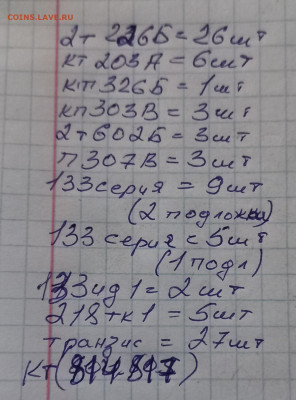 COINS.LAVE.RU
2т 226Б = 26шт
кт 203А = 6шт
кт 326Б = 1шт
кп 303В = 3шт
2т 602Б = 3шт
п 307В = 3шт
133 серия = 9шт
(2 подложки)
133 серия = 5шт
(1 подл)
133ид1 = 2шт
218тк1 = 5шт
транзис = 27шт
кт (814 817)